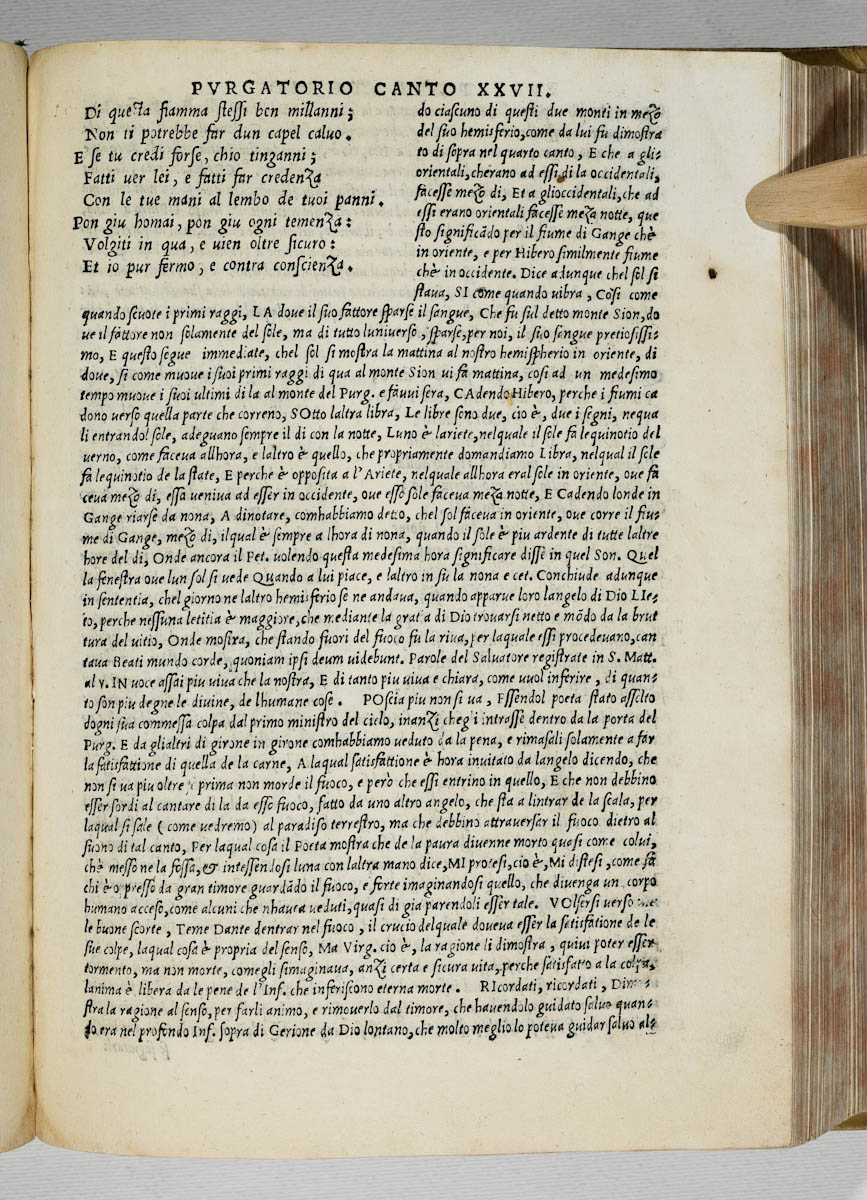 PVRGATORIO CANTO XXVII.
Di questa fiamma stessi ben millanni;
Non ti potrebbe far dun capel caluo.
E se tu credi forse, chio tinganni;
Fatti uer lei, e fatti far credenza
Con le tue mani al lembo de tuoi panni.
Pon giu homai, pon giu ogni temenza:
Volgiti in qua, e uien oltre sicuro:
Et io pur fermo, e contra conscienza.
do ciascuno di questi due monti in mezo
del suo hemisferio, come da lui fu dimostra
to di sopra nel quarto canto, E che a gli-
orientali, cherano ad essi di la occidentali,
facesse mezo di, Et a glioccidentali, che ad
essi erano orientali facesse meza notte, que
sto significādo per il fiume di Gange chè
in oriente, e per Hibero similmente fiume
chè in occidente. Dice adunque chel sol si
staua, SI come quando uibra, Cosi come
quando scuote i primi raggi, LA doue il suo fattore sparse il sangue, Che fu sul detto monte Sion, do
ue il fattore non solamente del sole, ma di tutto luniuerso, sparse, per noi, il suo sangue pretiosissi-
mo, E questo segue immediate, chel sol si mostra la mattina al nostro hemispherio in oriente, di
doue, si come muoue i suoi primi raggi di qua al monte Sion ui fa mattina, cosi ad un medesimo
tempo muoue i suoi ultimi di la al monte del Purg. e fauui sera, CAdendo Hibero, perche i fiumi ca
dono uerso quella parte che correno, SOtto laltra libra, Le libre sono due, cio è, due i segni, nequa
li entrandol sole, adeguano sempre il di con la notte, Luno è lariete, nelquale il sole fa lequinotio del
uerno, come faceua allhora, e laltro è quello, che propriamente domandiamo Libra, nelqual il sole
fa lequinotio de la state, E perche è opposita a l'Ariete, nelquale allhora eral sole in oriente, oue fa
ceua mezo di, essa ueniua ad esser in occidente, oue esso sole faceua meza notte, E Cadendo londe in
Gange riarse da nona, A dinotare, comhabbiamo detto, chel sol faceua in oriente, oue corre il fiu-
me di Gange, mezo di, ilqual è sempre a lhora di nona, quando il sole è piu ardente di tutte laltre
hore del di, Onde ancora il Pet. uolendo questa medesima hora significare disse in quel Son. Quel
la fenestra oue lun sol si uede Quando a lui piace, e laltro in su la nona e cet. Conchiude adunque
in sententia, chel giorno ne laltro hemisferio se ne andaua, quando apparue loro langelo di Dio LIe-
to, perche nessuna letitia è maggiore, che mediante la gratia di Dio trouarsi netto e mōdo da la brut
tura del uitio, Onde mostra, che stando fuori del fuoco su la riua, per laquale essi procedeuano, can
taua Beati mundo corde, quoniam ipsi deum uidebunt. Parole del Saluatore registrate in S. Matt.
al v. IN uoce assai piu uiua che la nostra, E di tanto piu uiua e chiara, come uuol inferire, di quan-
to son piu degne le diuine, de lhumane cose. POscia piu non si ua, Essendol poeta stato assolto
dogni sua commessa colpa dal primo ministro del cielo, inanzi chegli intrasse dentro da la porta del
Purg. E da glialtri di girone in girone comhabbiamo ueduto da la pena, e rimasali solamente a far
la satisfattione di quella de la carne, A laqual satisfattione è hora inuitato da langelo dicendo, che
non si ua piu oltre prima non morde il fuoco, e però che essi entrino in quello, E che non debbino
esser sordi al cantare di la da esso fuoco, fatto da uno altro angelo, che sta a lintrar de la scala, per
laqual si sale (come uedremo) al paradiso terrestro, ma che debbino attrauersar il fuoco dietro al
suono di tal canto, Per laqual cosa il Poeta mostra che de la paura diuenne morto quasi come colui,
chè messo ne la fossa, & intessendosi luna con laltra mano dice, MI protesi, cio è, Mi distesi, come fa
chi è oppresso da gran timore guardādo il fuoco, e forte imaginandosi quello, che diuenga un corpo
humano acceso, come alcuni che nhauea ueduti, quasi di gia parendoli esser tale. VOlsersi uerso me
le buone scorte, Teme Dante dentrar nel fuoco, il crucio delquale doueua esser la satisfatione de le
sue colpe, laqual cosa è propria del senso, Ma Virg. cio è, la ragione li dimostra, quiui poter esser
tormento, ma non morte, comegli simaginaua, anzi certa e sicura uita, perche satisfatto a la colpa,
lanima è libera da le pene de l'Inf. che inferiscono eterna morte. RIcordati, ricordati, Dimo-
stra la ragione al senso, per farli animo, e rimouerlo dal timore, che hauendolo guidato saluo quan-
do era nel profondo Inf. sopra di Gerione da Dio lontano, che molto meglio lo poteua guidar saluo al-